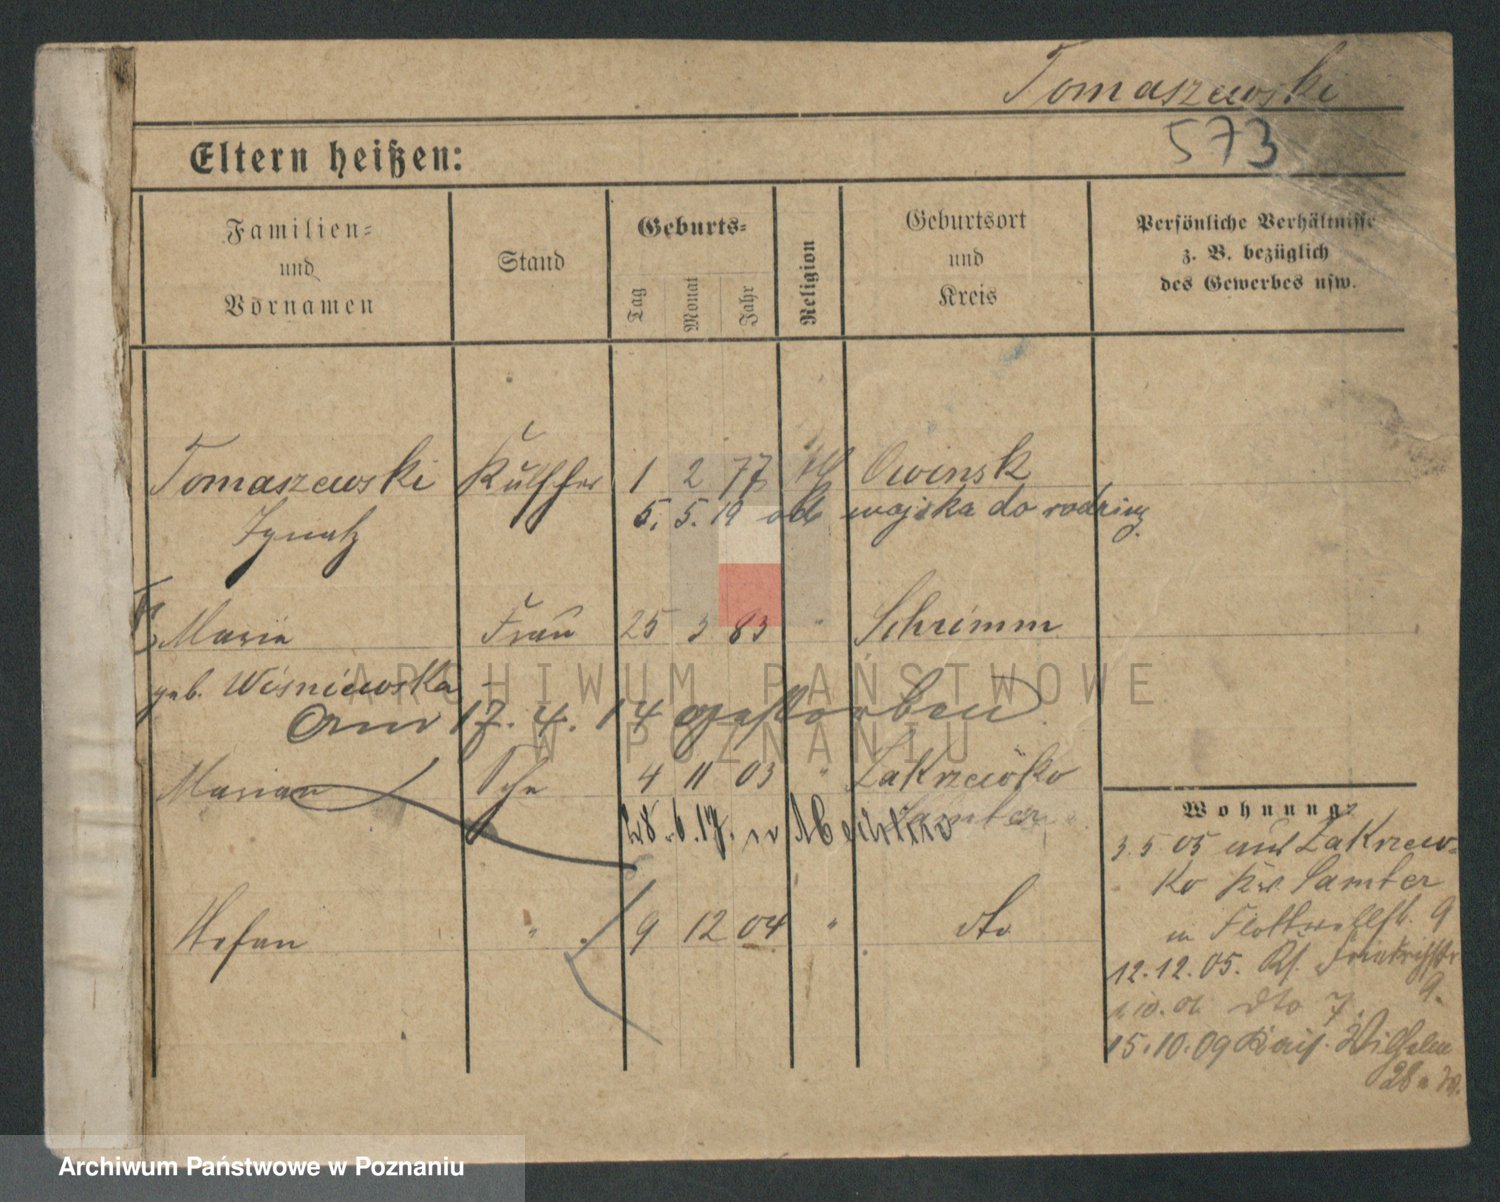 Tomaszewski
573
Eltern heißen:
Familien=
und
Vornamen
Stand
Geburts=
Tag
Monat
Jahr
Religion
Geburtsort
und
Kreis
Persönliche Verhältnisse
z. B. bezüglich
des Gewerbes usw.
Tomaszewski Kutscher 1 2 77 Owinsk
Ignatz 5. 5. 19 od wojska do rodziny
Maria Frau 25 3 83 " Schrimm
geb. Wiśniewska
am 17. 4. 14 gestorben
Marian 4 11 03 " Zakrzewko
Samter
28. 6. 17. n
Stefan " 9 12 04 " dto
Wohnung
3. 5 05 aus Zakrzew=
ko Kr. Samter
in Flottwellstr. 9
12. 12. 05. Friedrichstr
9.
dto 7.
15. 10. 09 Kais. Wilhelm
28
ARCHIWUM PAŃSTWOWE
W POZNANIU
Archiwum Państwowe w Poznaniu